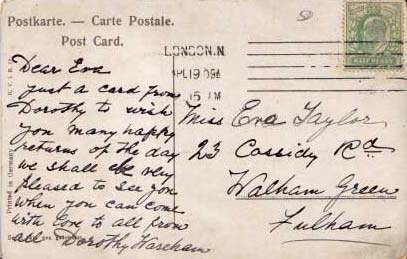 Postkarte. — Carte Postale.
Post Card.
LONDON.N
APL 19 09
15 AM
HALF PENNY
Dear Eva
Just a card from
Dorothy to wish
you many happy
returns of the day
we shall be very
pleased to see you
when you can come
with love to all from
all Dorothy Wareham
Miss Eva Taylor
23 Cassidy Rd
Walham Green
Fulham
Printed in Germany